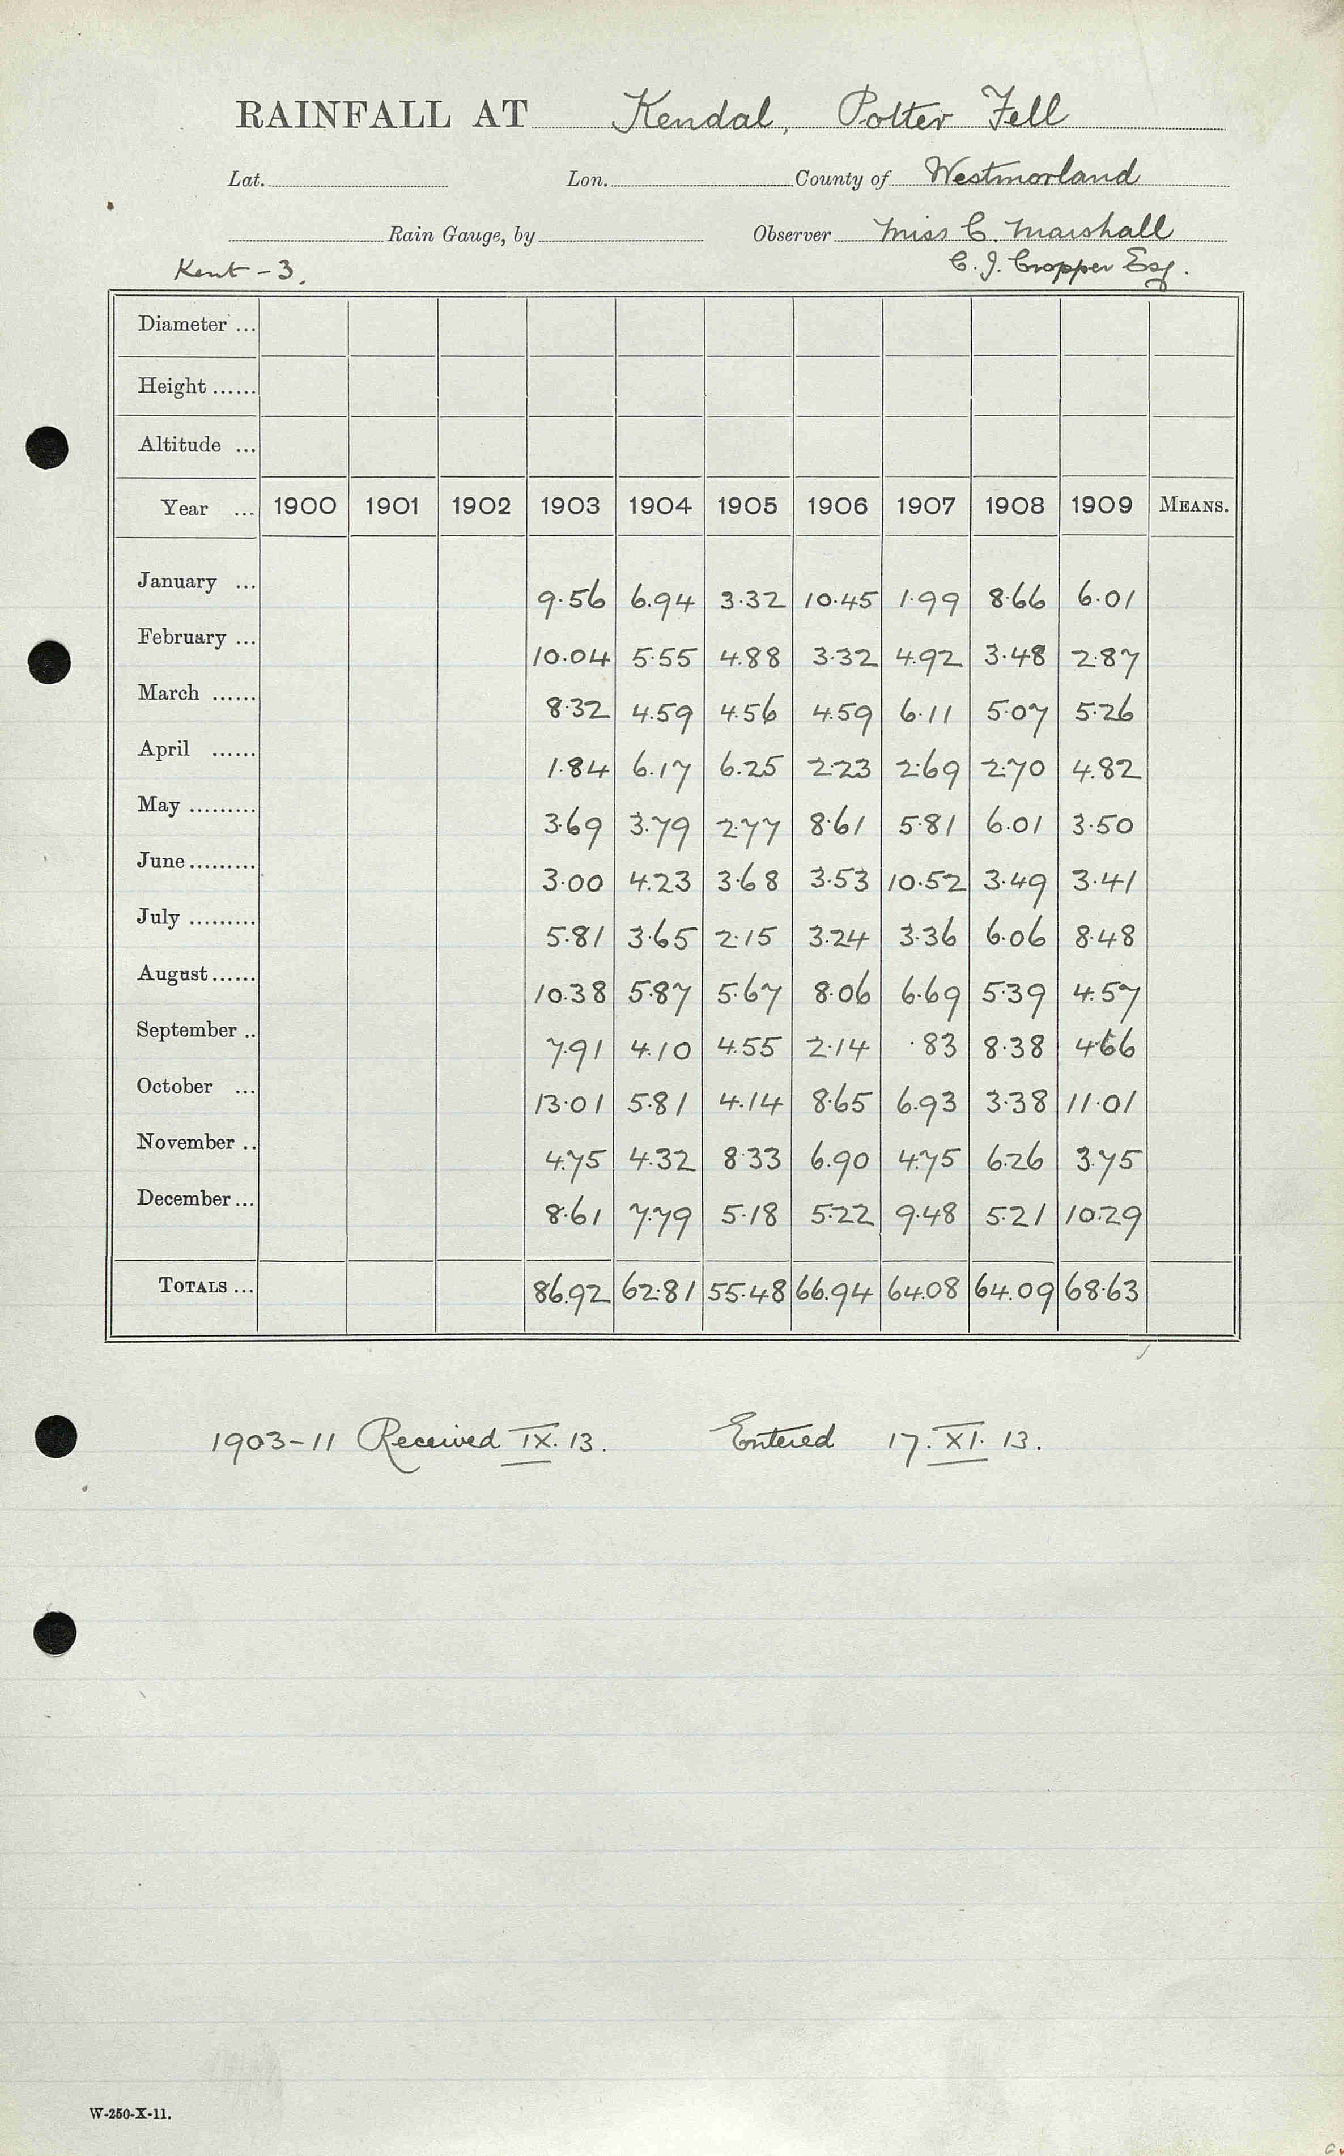 RAINFALL AT Kendal, Potter Fell
Lat. Lon. County of Westmorland
Rain Gauge, by Observer Miss C. Marshall
Kent - 3. C. J. Cropper Esq.
Diameter ...
Height ......
Altitude ...
Year ... 1900 1901 1902 1903 1904 1905 1906 1907 1908 1909 MEANS.
January ... 9.56 6.94 3.32 10.45 1.99 8.66 6.01
February ... 10.04 5.55 4.88 3.32 4.92 3.48 2.87
March ...... 8.32 4.59 4.56 4.59 6.11 5.07 5.26
April ...... 1.84 6.17 6.25 2.23 2.69 2.70 4.82
May ......... 3.69 3.79 2.77 8.61 5.81 6.01 3.50
June ......... 3.00 4.23 3.68 3.53 10.52 3.49 3.41
July ......... 5.81 3.65 2.15 3.24 3.36 6.06 8.48
August ...... 10.38 5.87 5.67 8.06 6.69 5.39 4.57
September .. 7.91 4.10 4.55 2.14 .83 8.38 4.66
October ... 13.01 5.81 4.14 8.65 6.93 3.38 11.01
November .. 4.75 4.32 8.33 6.90 4.75 6.26 3.75
December ... 8.61 7.79 5.18 5.22 9.48 5.21 10.29
TOTALS ... 86.92 62.81 55.48 66.94 64.08 64.09 68.63
1903-11 Received IX. 13. Entered 17. XI. 13.
W-250-X-11.